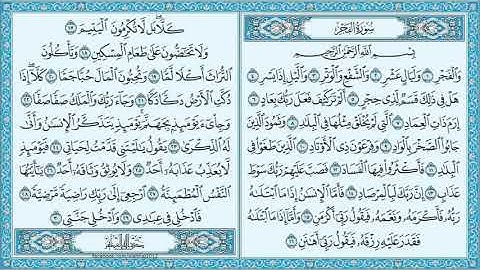 سُورَةُ الْفَجْرِ
بِسْمِ اللَّهِ الرَّحْمَٰنِ الرَّحِيمِ
وَالْفَجْرِ ١ وَلَيَالٍ عَشْرٍ ٢ وَالشَّفْعِ وَالْوَتْرِ ٣ وَاللَّيْلِ إِذَا يَسْرِ ٤
هَلْ فِي ذَٰلِكَ قَسَمٌ لِّذِي حِجْرٍ ٥ أَلَمْ تَرَ كَيْفَ فَعَلَ رَبُّكَ بِعَادٍ ٦
إِرَمَ ذَاتِ الْعِمَادِ ٧ الَّتِي لَمْ يُخْلَقْ مِثْلُهَا فِي الْبِلَادِ ٨ وَثَمُودَ الَّذِينَ
جَابُوا الصَّخْرَ بِالْوَادِ ٩ وَفِرْعَوْنَ ذِي الْأَوْتَادِ ١٠ الَّذِينَ طَغَوْا فِي
الْبِلَادِ ١١ فَأَكْثَرُوا فِيهَا الْفَسَادَ ١٢ فَصَبَّ عَلَيْهِمْ رَبُّكَ سَوْطَ
عَذَابٍ ١٣ إِنَّ رَبَّكَ لَبِالْمِرْصَادِ ١٤ فَأَمَّا الْإِنسَانُ إِذَا مَا ابْتَلَاهُ
رَبُّهُ فَأَكْرَمَهُ وَنَعَّمَهُ فَيَقُولُ رَبِّي أَكْرَمَنِ ١٥ وَأَمَّا إِذَا مَا ابْتَلَاهُ
فَقَدَرَ عَلَيْهِ رِزْقَهُ فَيَقُولُ رَبِّي أَهَانَنِ ١٦
كَلَّا بَل لَّا تُكْرِمُونَ الْيَتِيمَ ١٧
وَلَا تَحَاضُّونَ عَلَىٰ طَعَامِ الْمِسْكِينِ ١٨ وَتَأْكُلُونَ
التُّرَاثَ أَكْلًا لَّمًّا ١٩ وَتُحِبُّونَ الْمَالَ حُبًّا جَمًّا ٢٠ كَلَّا إِذَا
دُكَّتِ الْأَرْضُ دَكًّا دَكًّا ٢١ وَجَاءَ رَبُّكَ وَالْمَلَكُ صَفًّا صَفًّا ٢٢
وَجِيءَ يَوْمَئِذٍ بِجَهَنَّمَ يَوْمَئِذٍ يَتَذَكَّرُ الْإِنسَانُ وَأَنَّىٰ
لَهُ الذِّكْرَىٰ ٢٣ يَقُولُ يَا لَيْتَنِي قَدَّمْتُ لِحَيَاتِي ٢٤ فَيَوْمَئِذٍ
لَّا يُعَذِّبُ عَذَابَهُ أَحَدٌ ٢٥ وَلَا يُوثِقُ وَثَاقَهُ أَحَدٌ ٢٦ يَا أَيَّتُهَا
النَّفْسُ الْمُطْمَئِنَّةُ ٢٧ ارْجِعِي إِلَىٰ رَبِّكِ رَاضِيَةً مَّرْضِيَّةً ٢٨
فَادْخُلِي فِي عِبَادِي ٢٩ وَادْخُلِي جَنَّتِي ٣٠